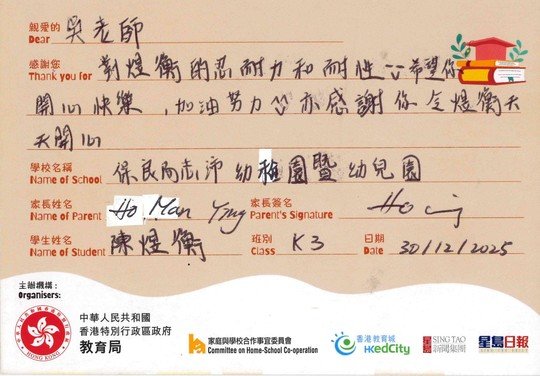 親愛的 吳老師
Dear
感謝您 對煜衡的忍耐力和耐性 希望你
Thank you for
開心快樂,加油努力 亦感謝你令煜衡天
天開心
學校名稱 保良局志沛幼稚園暨幼兒園
Name of School
家長姓名 Ho Man Ying 家長簽名
Name of Parent Parent's Signature
學生姓名 陳煜衡 班別 K3 日期 30/12/2025
Name of Student Class Date
主辦機構:
Organisers:
中華人民共和國
香港特別行政區政府
教育局
HONG KONG
家庭與學校合作事宜委員會
Committee on Home-School Co-operation
香港教育城
HKedCity
SING TAO
新聞集團
星島日報